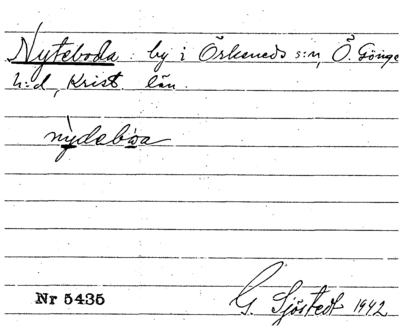 Nyteboda : by i Örkeneds s:n, Ö. Göinge
h:d, Krist. län.
nỳdebòa
Nr 5435
G. Sjöstedt 1942